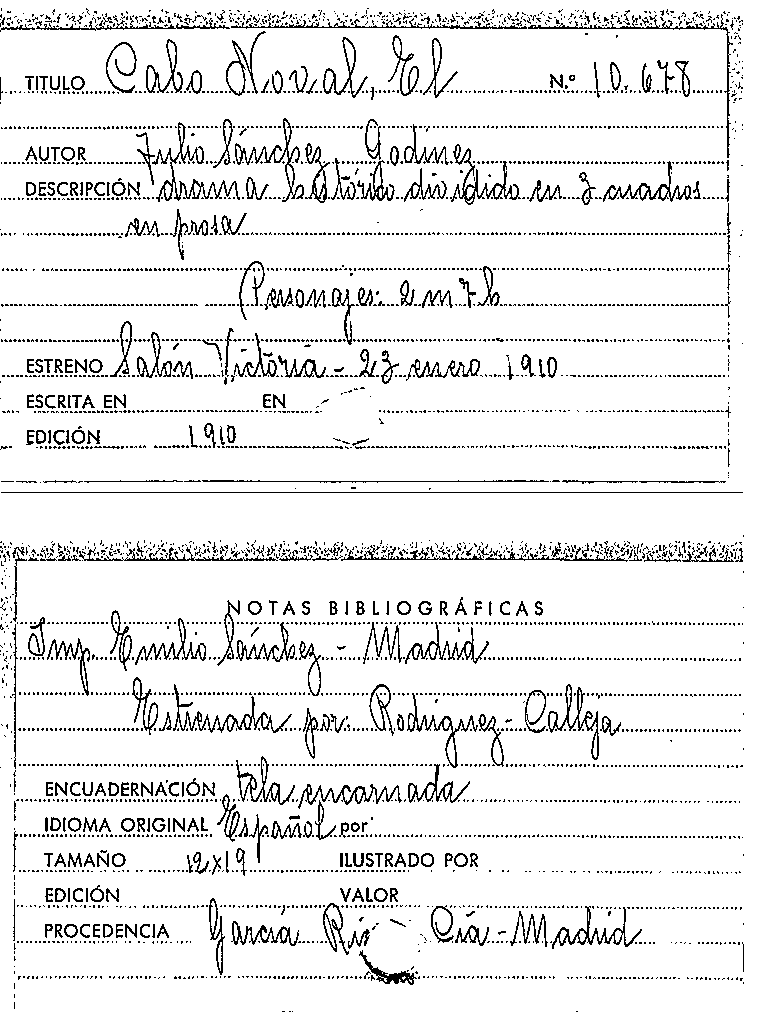 TITULO Cabo Noval, El N.º 10.678
AUTOR Julio Sánchez Godínez
DESCRIPCIÓN drama histórico dividido en 3 cuadros
en prosa
Personajes: 2 m 7 h
ESTRENO Salón Victoria - 23 enero 1910
ESCRITA EN EN
EDICIÓN 1910
NOTAS BIBLIOGRÁFICAS
Imp. Emilio Sánchez - Madrid
Estrenada por: Rodriguez - Calleja
ENCUADERNACIÓN tela encarnada
IDIOMA ORIGINAL Español por
TAMAÑO 12 x 19 ILUSTRADO POR
EDICIÓN VALOR
PROCEDENCIA García Cía - Madrid